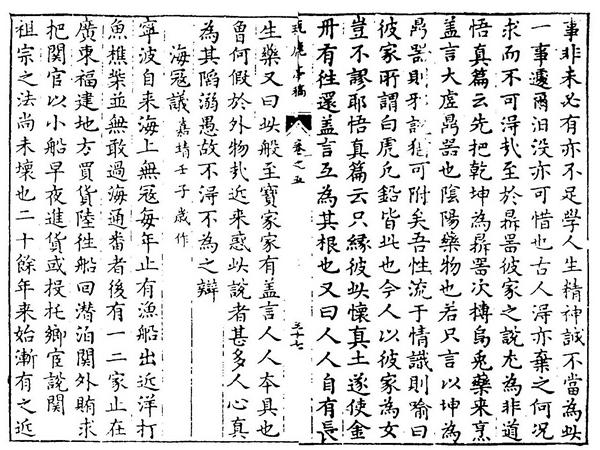 事非未必有亦不足學人生精神誠不當為此
一事遽爾汨没亦可惜也古人淂亦棄之何况
求而不可淂㢤至於鼎噐彼家之說尤為非道
悟真篇云先把乾坤為鼎噐次摶烏兎藥来烹
盖言大虗鼎噐也隂陽藥物也若只言以坤為
鼎噐則邪說猶可附矣吾性流于情識則喻曰
彼家所謂白虎兎鉛皆此也今人以彼家為女
豈不謬耶悟真篇云只縁彼此懐真土遂使金
丹有徃還盖言互為其根也又曰人人自有長
玩鹿亭稿 卷之五
生藥又曰此般至寳家家有盖言人人本具也
曾何假於外物㢤近来惑此說者甚多人心真
為其䧟溺愚故不淂不為之辯
海冦議 嘉靖壬子歲作
寧波自来海上無冦每年止有漁船出近洋打
魚樵柴並無敢過海通畨者後有一二家止在
廣東福建地方買貨陸徃船回潜泊関外賄求
把関官以小船早夜進貨或投托鄉宦說関
祖宗之法尚未壊也二十餘年来始漸有之近